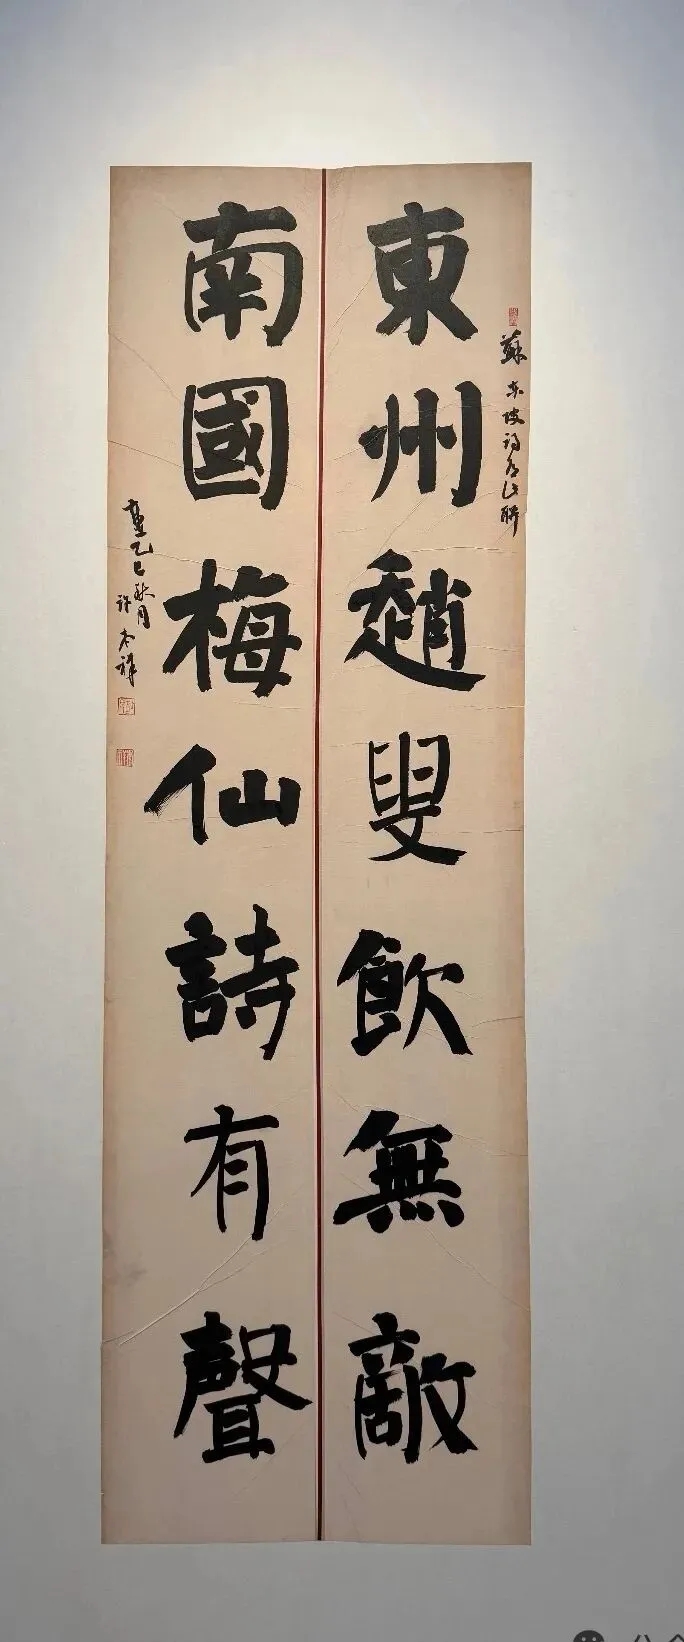 東州趙叟飲無敵
蘇東坡詩有此聯
南國梅仙詩有聲
乙巳秋月
許